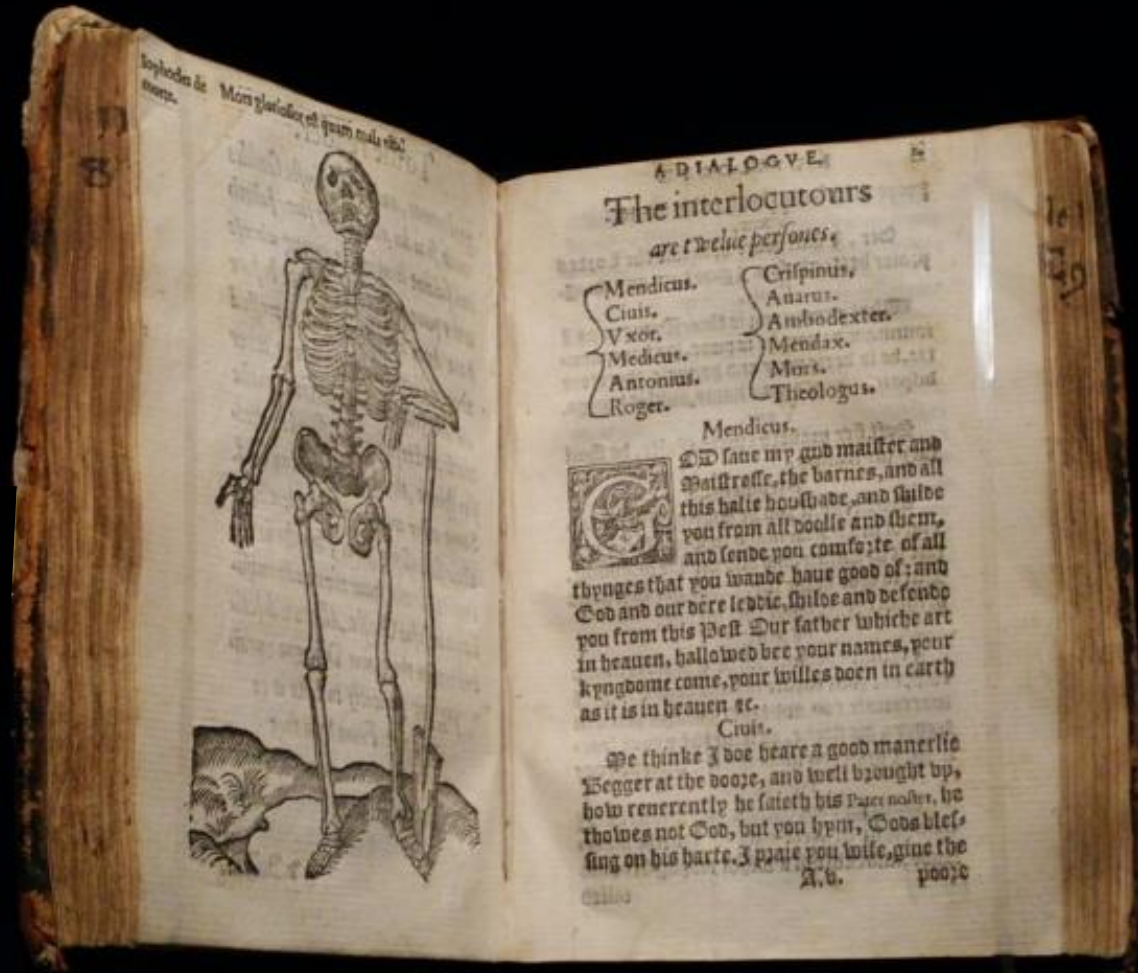 Sophocles de
morte.
Mors gloriosior est quam mala vita.
A DIALOGVE.
The interlocutours
are twelue persones.
Mendicus.
Ciuis.
Vxor.
Medicus.
Antonius.
Roger.
Crispinus.
Auarus.
Ambodexter.
Mendax.
Mors.
Theologus.
Mendicus.
GOD saue my gud maister and
Maistresse, the barnes, and all
this halie houshade, and shilde
you from all doolle and shem,
and sende you comforte of all
thynges that you wande haue good of: and
God and our dere leddie, shilde and defende
you from this Pest Our father whiche art
in heauen, hallowed bee your names, your
kyngdome come, your willes doen in earth
as it is in heauen &c.
Ciuis.
Me thinke I doe heare a good manerlie
Begger at the doore, and well brought vp,
how reuerently he saieth his Pater noster, he
thowes not God, but you hym, Gods bles-
sing on his harte. I praie you wife, giue the
A.v. poore